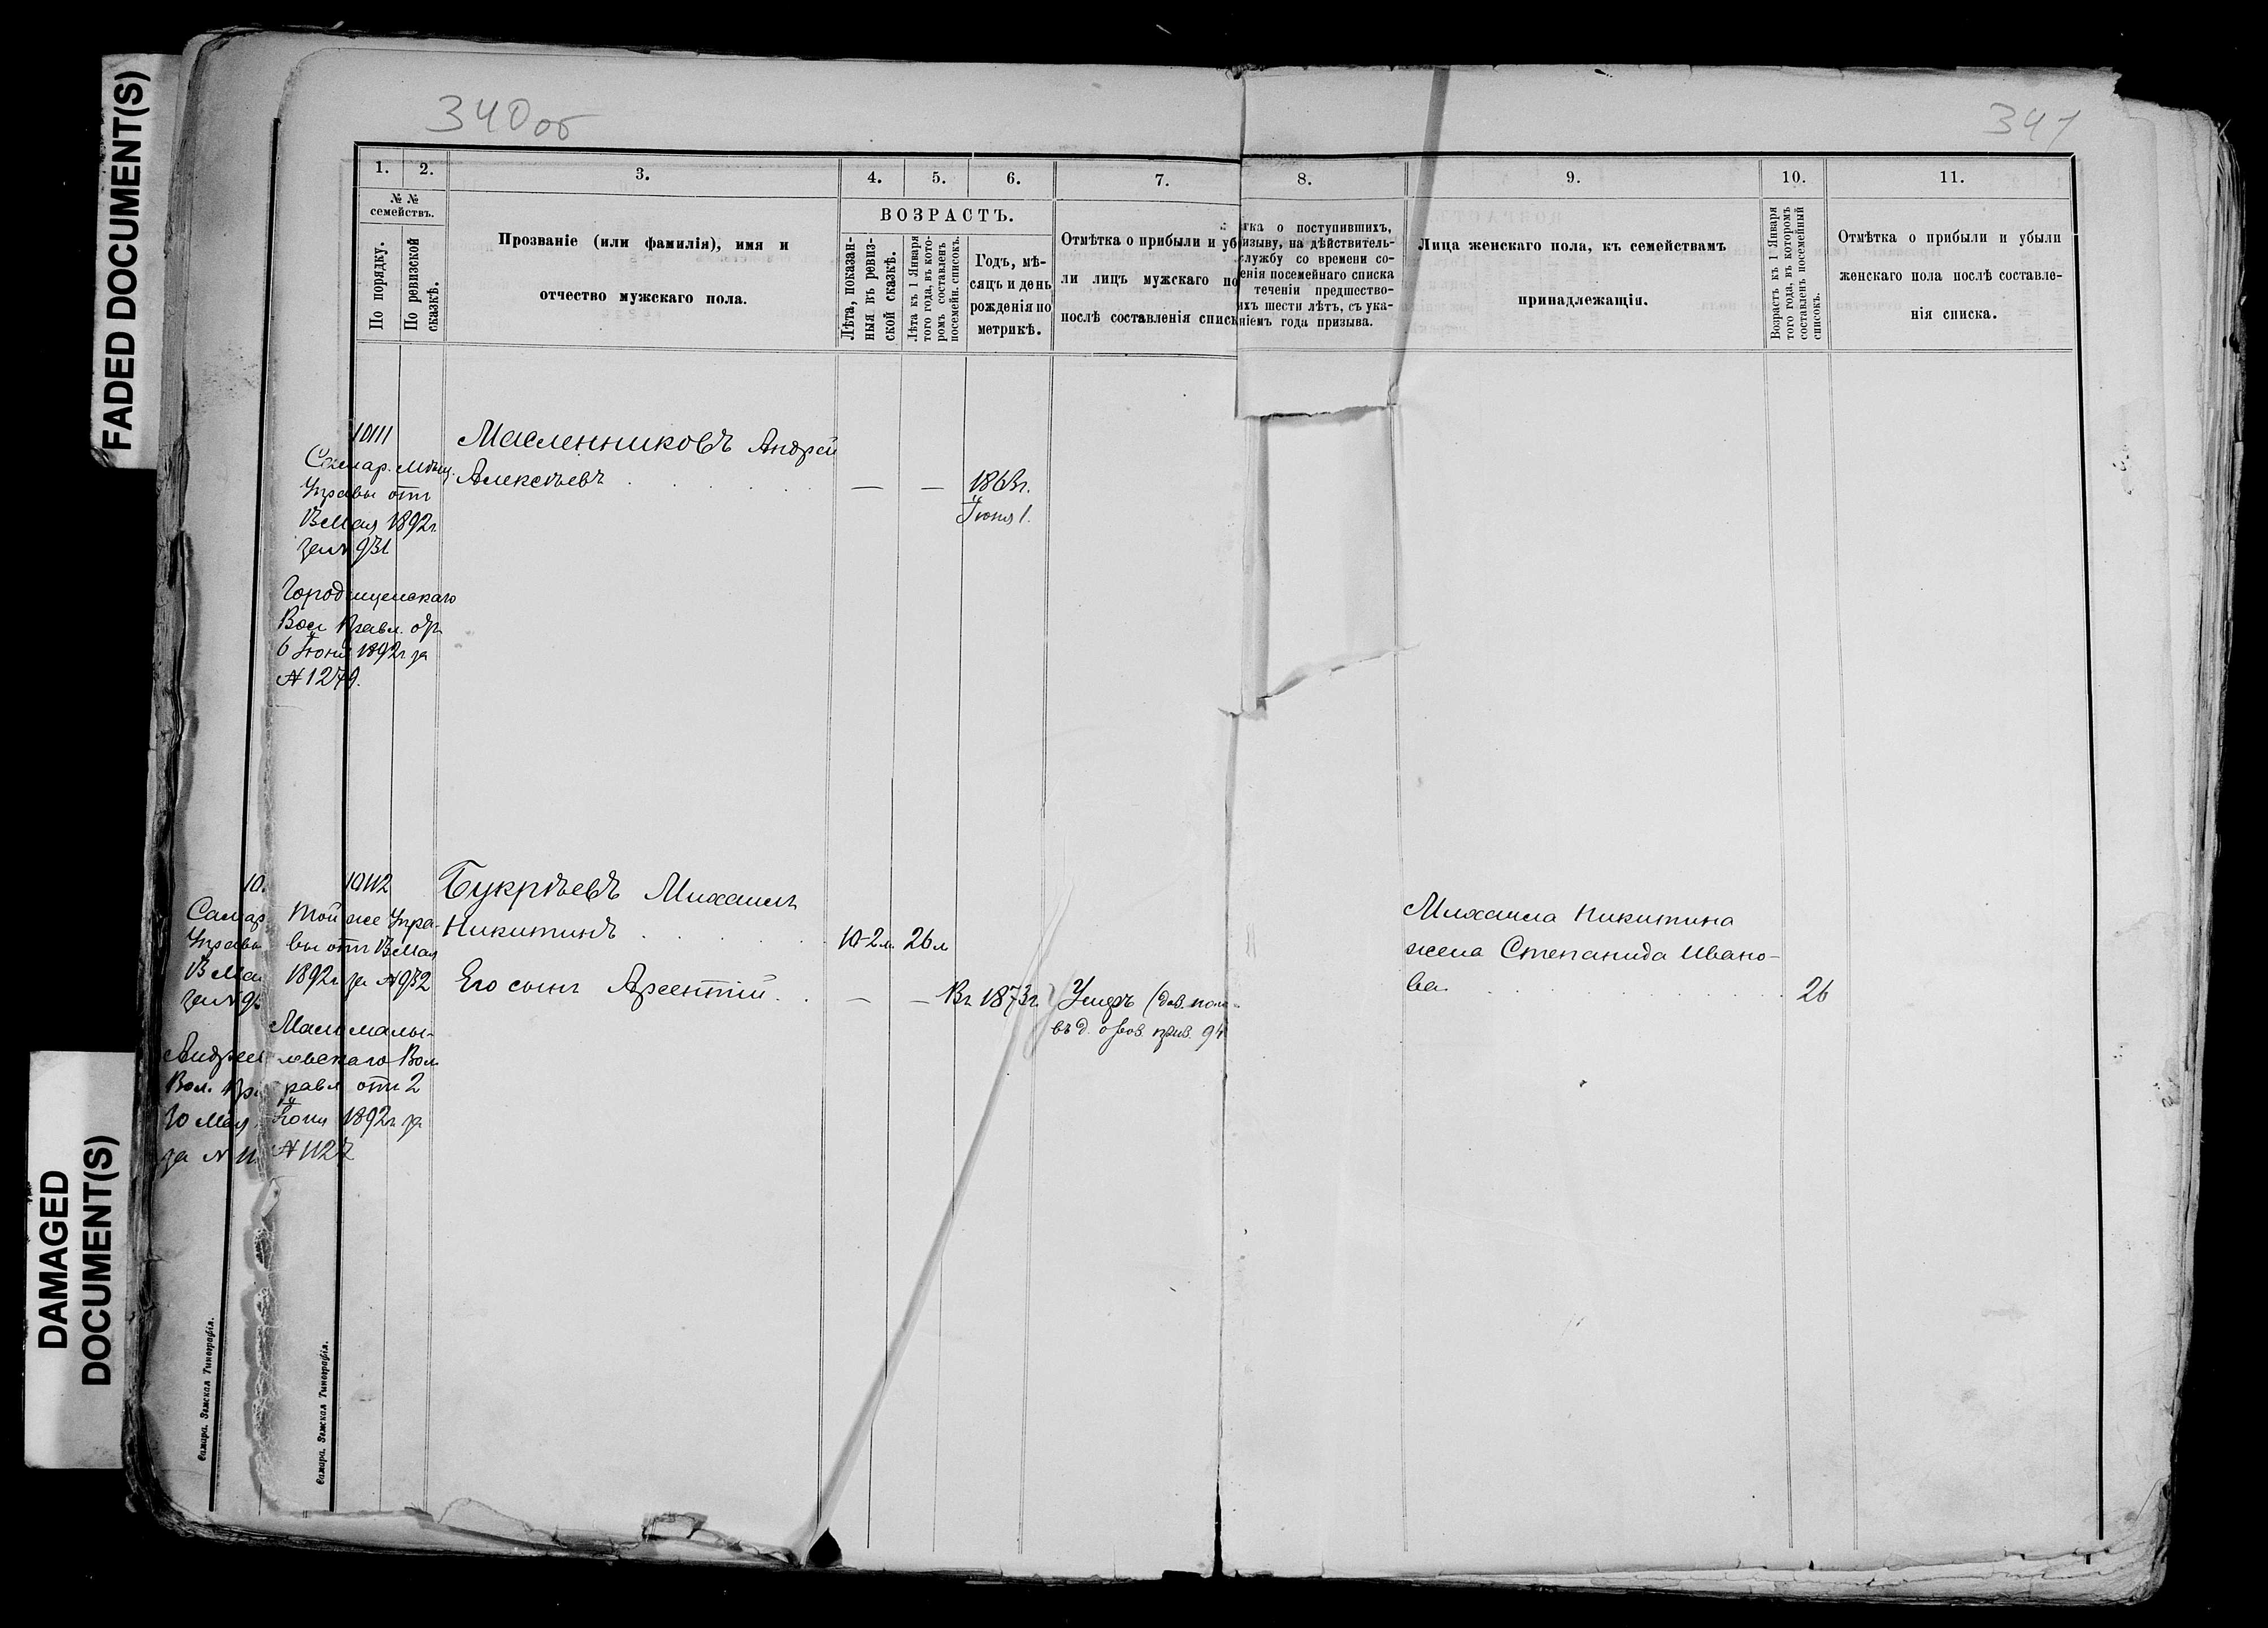 FADED DOCUMENT(S)
DAMAGED
DOCUMENT(S)
340об
341
1.
2.
3.
4.
5.
6.
7.
8.
9.
10.
11.
№ №
семействъ.
По порядку.
По ревизской
сказкѣ.
Прозваніе (или фамилія), имя и
отчество мужскаго пола.
ВОЗРАСТЪ.
Лѣта, показан-
ныя въ ревиз-
ской сказкѣ.
Лѣта къ 1 Января
того года, въ кото-
ромъ составленъ
посемейн. списокъ.
Годъ, мѣ-
сяцъ и день
рожденія по
метрикѣ.
Отмѣтка о прибыли и уб
ли лицъ мужскаго по
послѣ составленія списк
тка о поступившихъ,
изыву, на дѣйствитель-
службу со времени со-
енія посемейнаго списка
теченіи предшество-
ихъ шести лѣтъ, съ ука-
ніемъ года призыва.
Лица женскаго пола, къ семействамъ
принадлежащія.
Возрастъ къ 1 Января
того года, въ которомъ
составленъ посемейный
списокъ.
Отмѣтка о прибыли и убыли
женскаго пола послѣ составле-
нія списка.
10111
Самар. Мѣщ.
Управы отъ
13 Мая 1892г.
за № 931
Городищенскаго
Вол Правл. отъ
6 Іюня 1892г за
№ 1279.
Масленниковъ Андрей
Алексѣевъ — — 1863г.
Іюня 1.
10112
Той же Упра-
вы отъ 13 Мая
1892г за № 932
Маломалы-
левскаго Вол.
равл отъ 2
Іюня 1892г за
№ 1127
Букрѣевъ Михаилъ
Никитинъ 10-2м. 26л
Его сынъ Арсентій — — Въ 1873г. Умеръ
Михаила Никитина
жена Степанида Ивано-
ва 26
10.
Самар.
Управы
13 Мая
за № 9
Андрее
Вол. Пр
20 Мая
за № 11
Самара. Земская Типографія.
Самара. Земская Типографія.